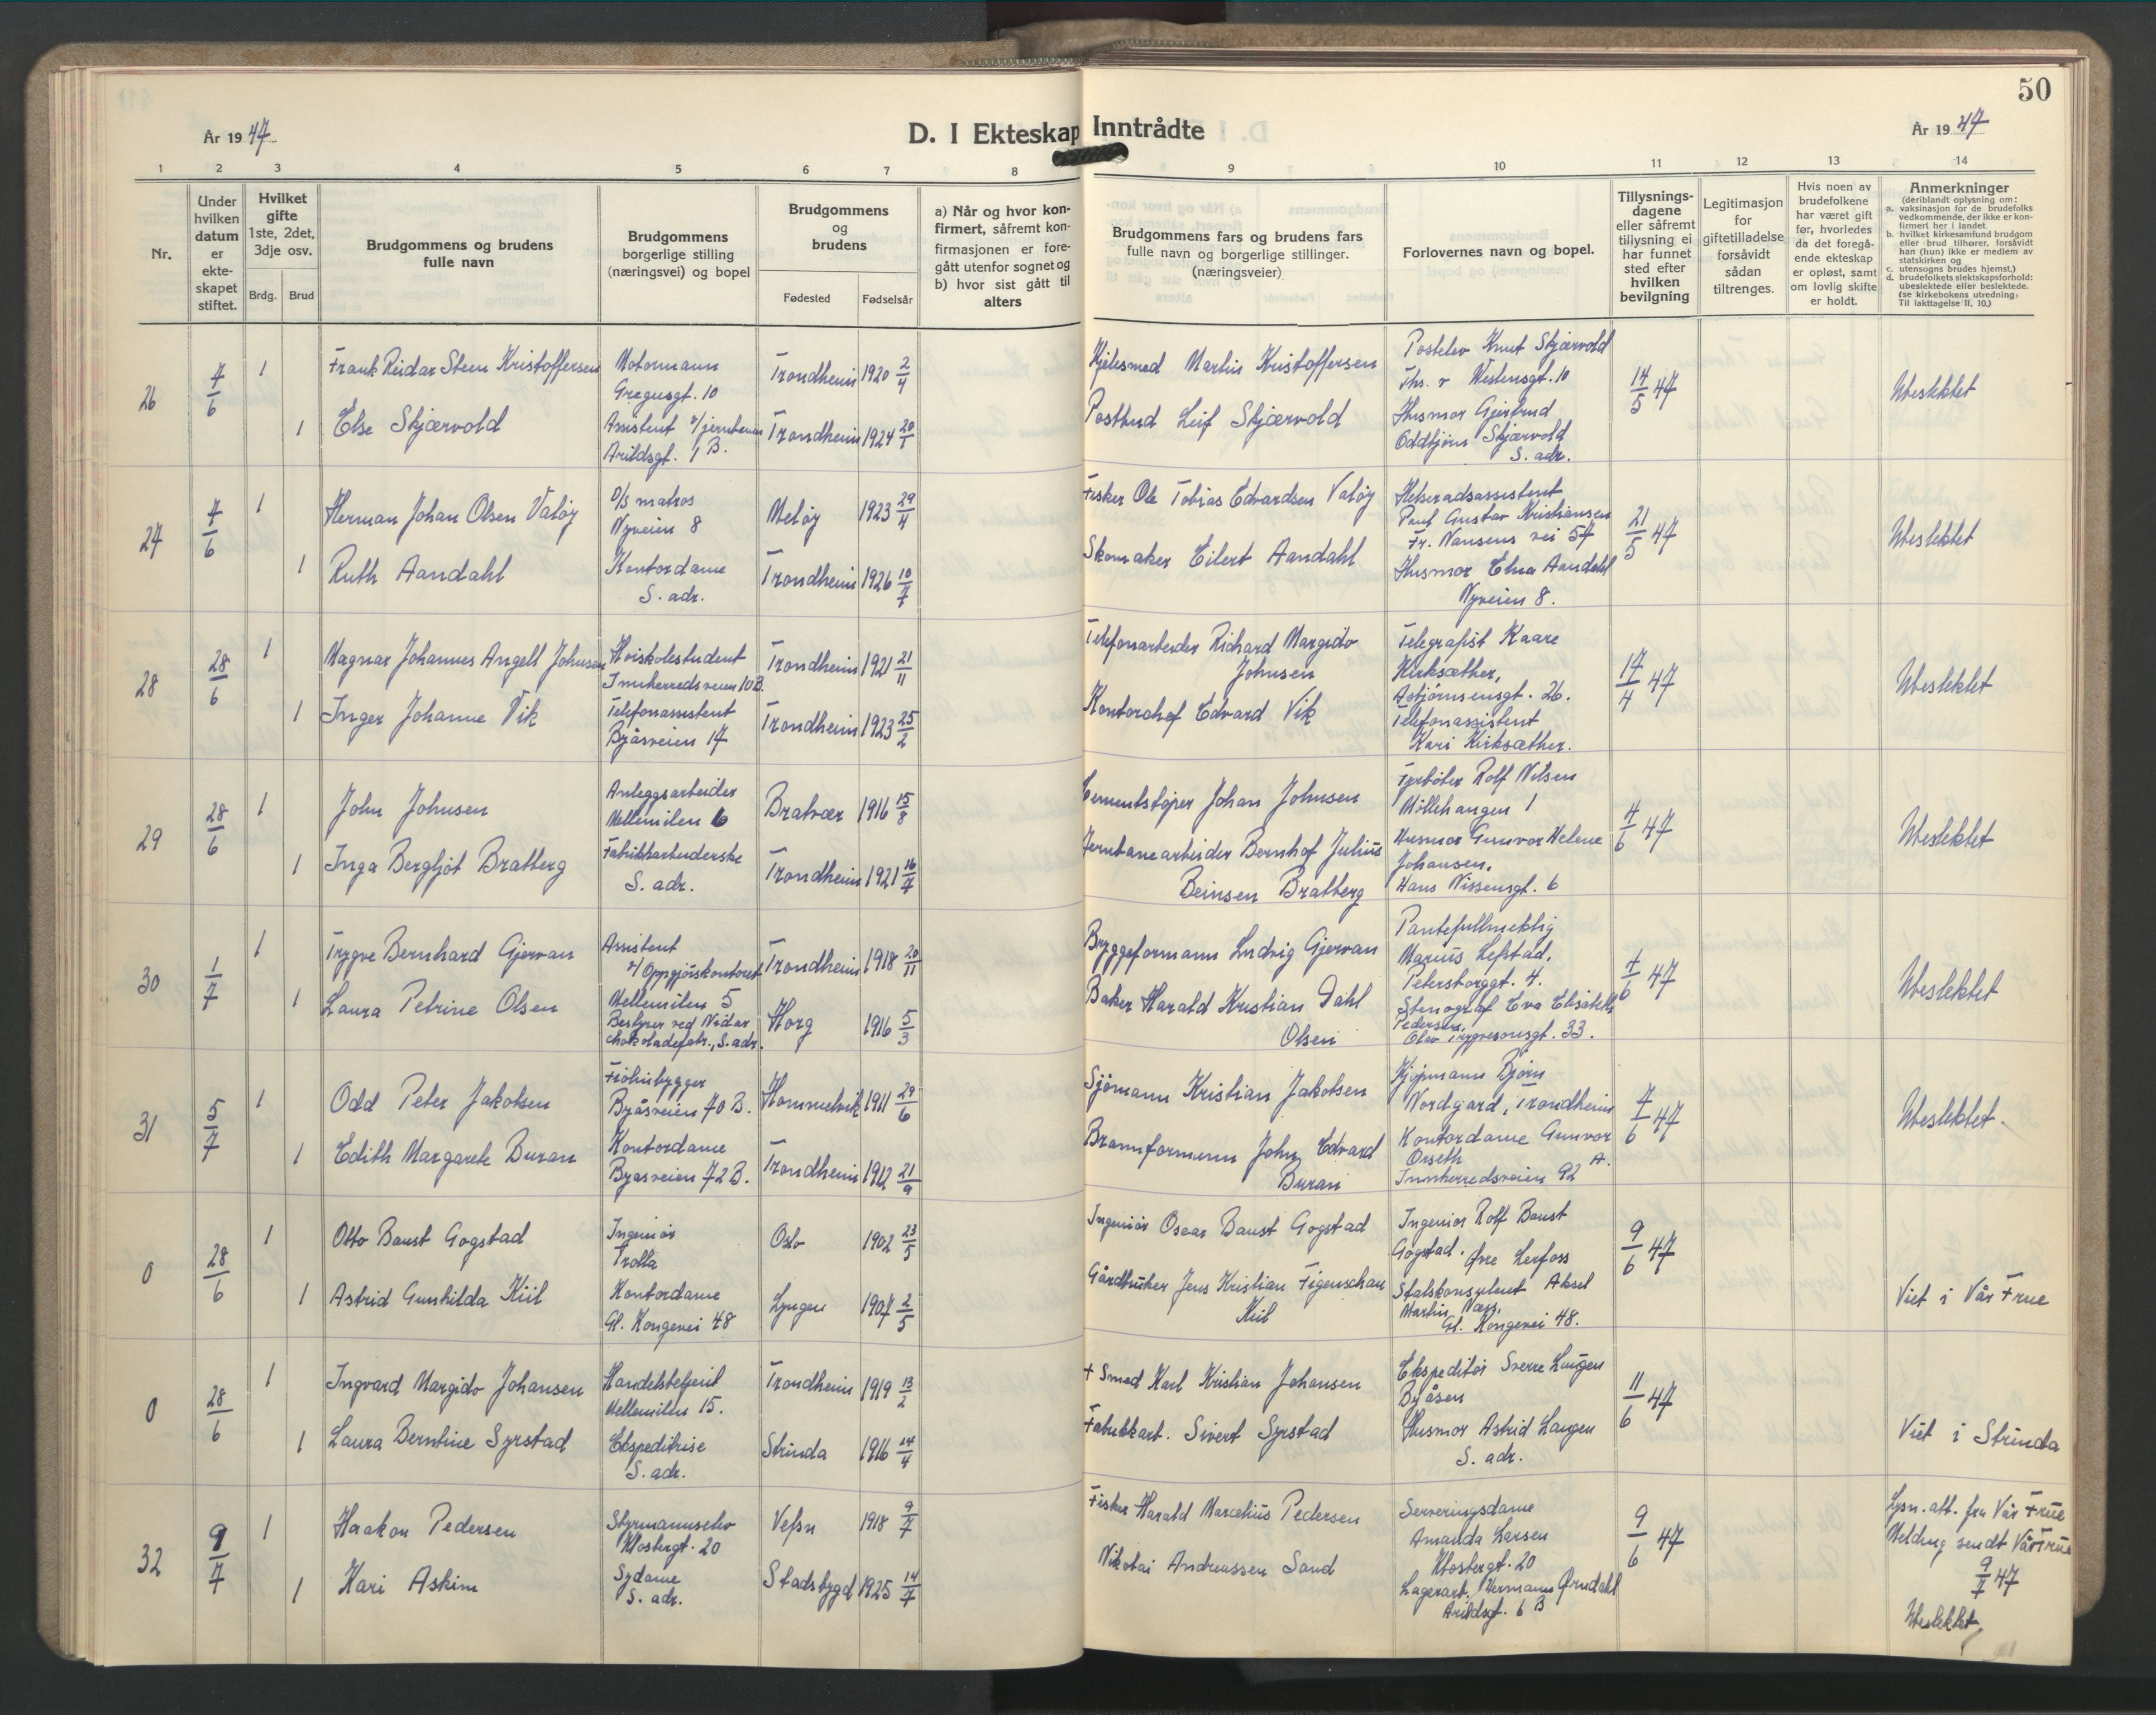 50
År 1947
D. I Ekteskap Inntrådte
År 1947
1 2 3 4 5 6 7 8 9 10 11 12 13 14
Nr.
Under hvilken datum er ekte-skapet stiftet.
Hvilket gifte 1ste, 2det, 3dje osv.
Brdg. Brud
Brudgommens og brudens fulle navn
Brudgommens borgerlige stilling (næringsvei) og bopel
Brudgommens og brudens
Fødested Fødselsår
a) Når og hvor kon-firmert, såfremt kon-firmasjonen er fore-gått utenfor sognet og
b) hvor sist gått til alters
Brudgommens fars og brudens fars fulle navn og borgerlige stillinger. (næringsveier)
Forlovernes navn og bopel.
Tillysnings-dagene eller såfremt tillysning ei har funnet sted efter hvilken bevilgning
Legitimasjon for giftetilladelse forsåvidt sådan tiltrenges.
Hvis noen av brudefolkene har været gift før, hvorledes da det foregå-ende ekteskap er opløst, samt om lovlig skifte er holdt.
Anmerkninger
(deriblandt oplysning om:
a. vaksinasjon for de brudefolks vedkommende, der ikke er kon-firmert her i landet.
b. hvilket kirkesamfund brudgom eller brud tilhører, forsåvidt han (hun) ikke er medlem av statskirken og
c. utensogns brudes hjemst.)
d. brudefolkets slektskapsforhold: ubeslektede eller beslektede. (se kirkebokens utredning: Til iakttagelse II, 10.)
26 7/6 1 Frank Reidar Steen Kristoffersen
Motormann
Gregusgt. 10
Trondheim 1920 2/4
Kjelesmed Martin Kristoffersen
Postelev Knut Skjærvold
Ths. v Westensgt. 10
14/5 47
Ubeslektet
1 Else Skjærvold
Assistent v/jernbanen
Arildsgt. 1 B.
Trondheim 1924 20/1
Postbud Leif Skjærvold
Husmor Gjertrud
Oddbjörn Skjærvold
S. adr.
27 7/6 1 Herman Johan Olsen Valøy
D/S matros
Nyveien 8
Meløy 1923 29/4
Fisker Ole Tobias Edvardsen Valøy
Helseradsassistent
Paul Gustav Kristiansen
Fr. Nansens vei 57
21/5 47
Ubeslektet
1 Ruth Aandahl
Kontordame
S. adr.
Trondheim 1926 10/7
Skomaker Eilert Aandahl
Husmor Elna Aandahl
Nyveien 8.
28 28/6 1 Magnar Johannes Angell Johnsen
Høiskolestudent
Innherredsveien 10 B.
Trondheim 1921 21/11
Telefonarbeider Richard Margido
Johnsen
Telegrafist Kaare
Kirksæther,
Asbjörnsensgt. 26.
17/4 47
Ubeslektet
1 Inger Johanne Vik
Telefonassistent
Byåsveien 17
Trondheim 1923 25/2
Kontorchef Edvard Vik
Telefonassistent
Kari Kirksæther.
29 28/6 1 John Johnsen
Anleggsarbeider
Mellemilen 6
Bratvær 1916 15/8
Cementstöper Johan Johnsen
Fyrböter Rolf Nilsen
Möllehaugen 1
4/6 47
Ubeslektet
1 Inga Bergljot Bratberg
Fabrikkarbeiderske
S. adr.
Trondheim 1921 16/7
Jernbanearbeider Bernhof Julius
Beinsen Bratberg
Husmor Gunvor Helene
Johansen.
Hans Nissensgt. 6
30 1/7 1 Trygve Bernhard Gjervan
Assistent
v/Oppgjörskontoret
Mellemilen 5
Trondheim 1918 20/11
Bryggeformann Ludvig Gjervan
Pantefullmektig
Marius Lefstad,
Petersborggt. 4.
7/6 47
Ubeslektet
1 Laura Petrine Olsen
Bestyrer ved Nidar
chokoladefabr., S. adr.
Horg 1916 5/3
Baker Harald Kristian Dahl
Olsen
Stenograf Eva Elisabeth
Pedersen,
Olav Trygvesonsgt. 33.
31 5/7 1 Odd Peter Jakobsen
Fiolinbygger
Byåsveien 70 B.
Hommelvik 1911 29/6
Sjömann Kristian Jakobsen
Kjöpmann Björn
Nordgard, Trondheim
7/6 47
Ubeslektet.
1 Edith Margarete Buran
Kontordame
Byåsveien 72 B.
Trondheim 1912 21/9
Brannformann John Edvard
Buran
Kontordame Gunvor
Orseth
Innherredsveien 92 A.
0 28/6 1 Otto Baust Gogstad
Ingeniör
Trolla
Oslo 1902 23/5
Ingeniör Oscar Baust Gogstad
Ingeniör Rolf Baust
Gogstad. Øvre Lerfoss
9/6 47
1 Astrid Gunhilda Kiil
Kontordame
Gl. Kongevei 48
Lyngen 1907 2/5
Gårdbruker Jens Kristian Figenschau
Kiil
Statskonsulent Aksel
Martin Næss.
Gl. Kongevei 48.
Viet i Vår Frue
0 28/6 1 Ingvard Margido Johansen
Handelsbetjent
Mellemilen 15.
Trondheim 1919 13/2
+ Smed Karl Kristian Johansen
Ekspeditör Sverre Laugen
Byåsen
11/6 47
1 Laura Berntine Syrstad
Ekspeditrise
S. adr.
Strinda 1916 14/4
Fabrikkarb. Sivert Syrstad
Husmor Astrid Laugen
S. adr.
Viet i Strinda
32 9/7 1 Haakon Pedersen
Styrmannselev
Klostergt. 20
Vefsn 1918 9/7
Fisker Harald Marcelius Pedersen
Serveringsdame
Amanda Larsen
Klostergt. 20
9/6 47
Lysn. att. fra Vår Frue
Melding sendt Vår Frue
9/7 47
1 Kari Askim
Sydame
S. adr.
Stadsbygd 1925 14/7
Nikolai Andreassen Sand
Lagerarb. Hermann Ørndahl
Arildsgt. 6 B
Ubeslektet.